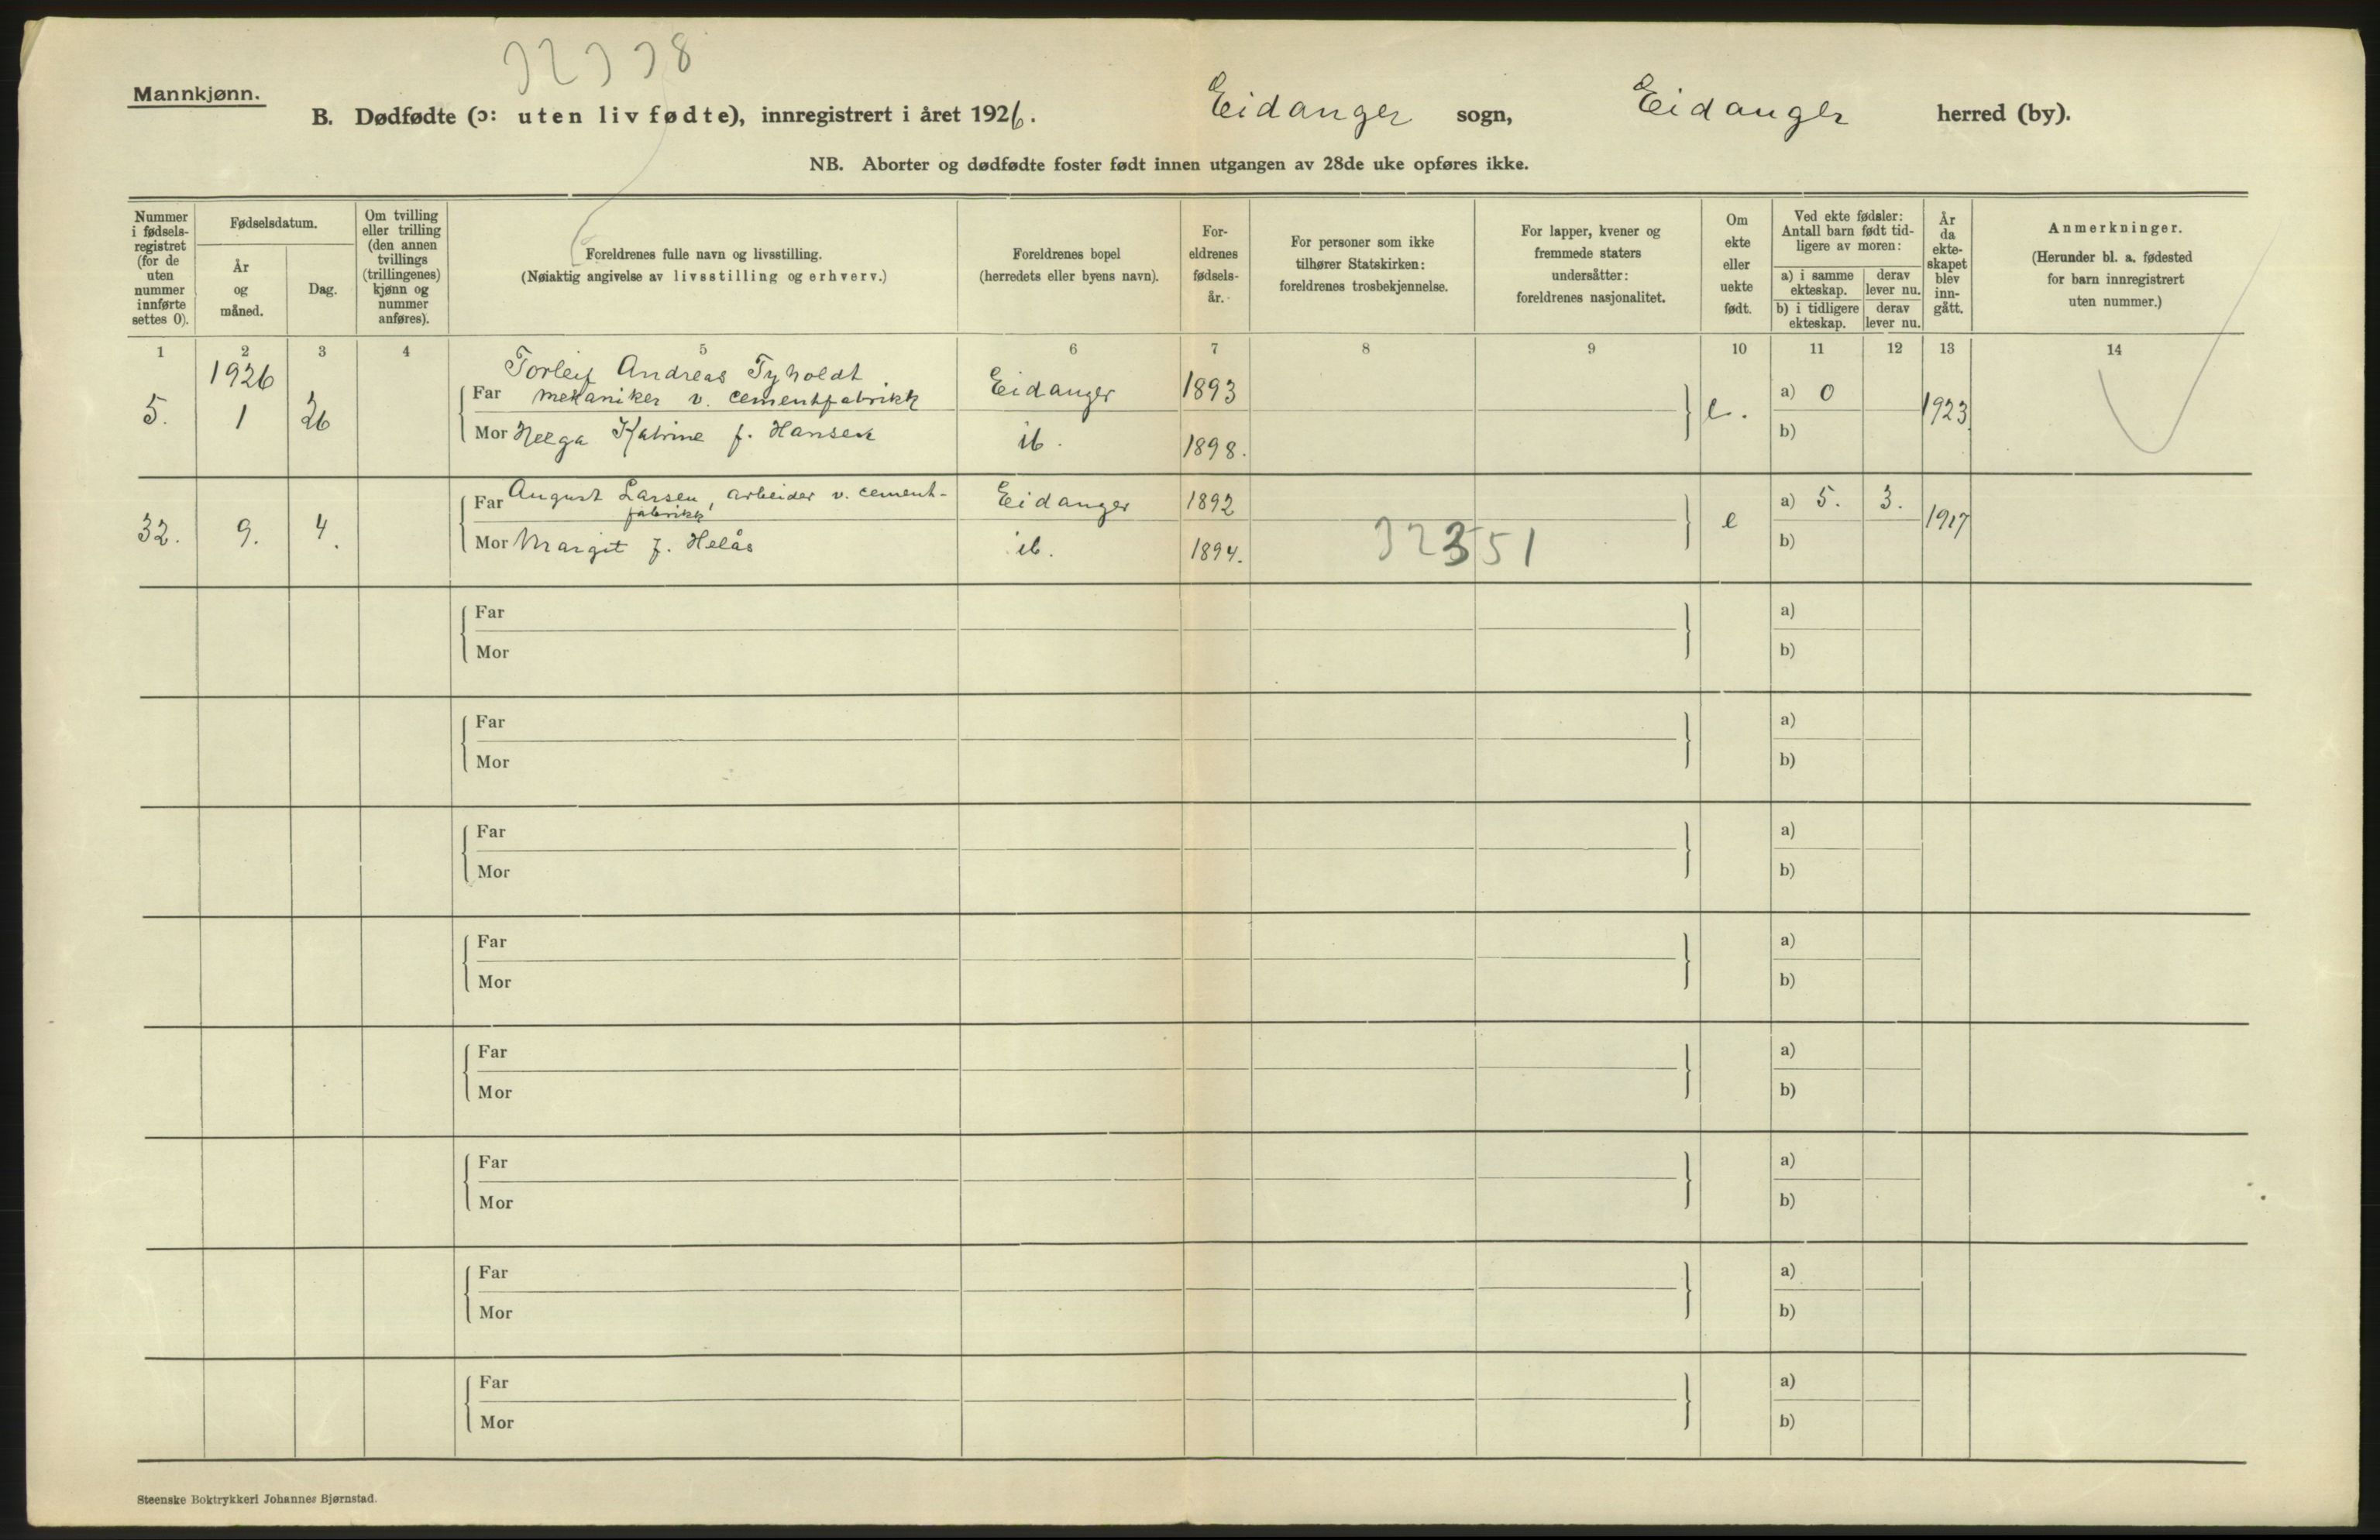 32338
Mannkjønn.
B. Dødfødte (ɔ: uten liv fødte), innregistrert i året 1926. Eidanger sogn, Eidanger herred (by).
NB. Aborter og dødfødte foster født innen utgangen av 28de uke opføres ikke.
Nummer
i fødsels-
registret
(for de
uten
nummer
innførte
settes 0).
Fødselsdatum.
År
og
måned.
Dag.
Om tvilling
eller trilling
(den annen
tvillings
(trillingenes)
kjønn og
nummer
anføres).
Foreldrenes fulle navn og livsstilling.
(Nøiaktig angivelse av livsstilling og erhverv.)
Foreldrenes bopel
(herredets eller byens navn).
For-
eldrenes
fødsels-
år.
For personer som ikke
tilhører Statskirken:
foreldrenes trosbekjennelse.
For lapper, kvener og
fremmede staters
undersåtter:
foreldrenes nasjonalitet.
Om
ekte
eller
uekte
født.
Ved ekte fødsler:
Antall barn født tid-
ligere av moren:
a) i samme
ekteskap.
derav
lever nu.
b) i tidligere
ekteskap.
derav
lever nu.
År
da
ekte-
skapet
blev
inn-
gått.
Anmerkninger.
(Herunder bl. a. fødested
for barn innregistrert
uten nummer.)
1 2 3 4 5 6 7 8 9 10 11 12 13 14
1926
Torleif Andreas Tyholdt
Far mekaniker v. cementfabrikk Eidanger 1893 a) 0
5. 1 26 e. 1923
Mor Helga Katrine f. Hansen ib. 1898. b)
Far August Larsen, arbeider v. cement-
fabrikk
Eidanger 1892 a) 5. 3.
32. 9. 4. e 1917
Mor Margit f. Helås ib. 1894. 32351 b)
Far a)
Mor b)
Far a)
Mor b)
Far a)
Mor b)
Far a)
Mor b)
Far a)
Mor b)
Far a)
Mor b)
Far a)
Mor b)
Far a)
Mor b)
Steenske Boktrykkeri Johannes Bjørnstad.